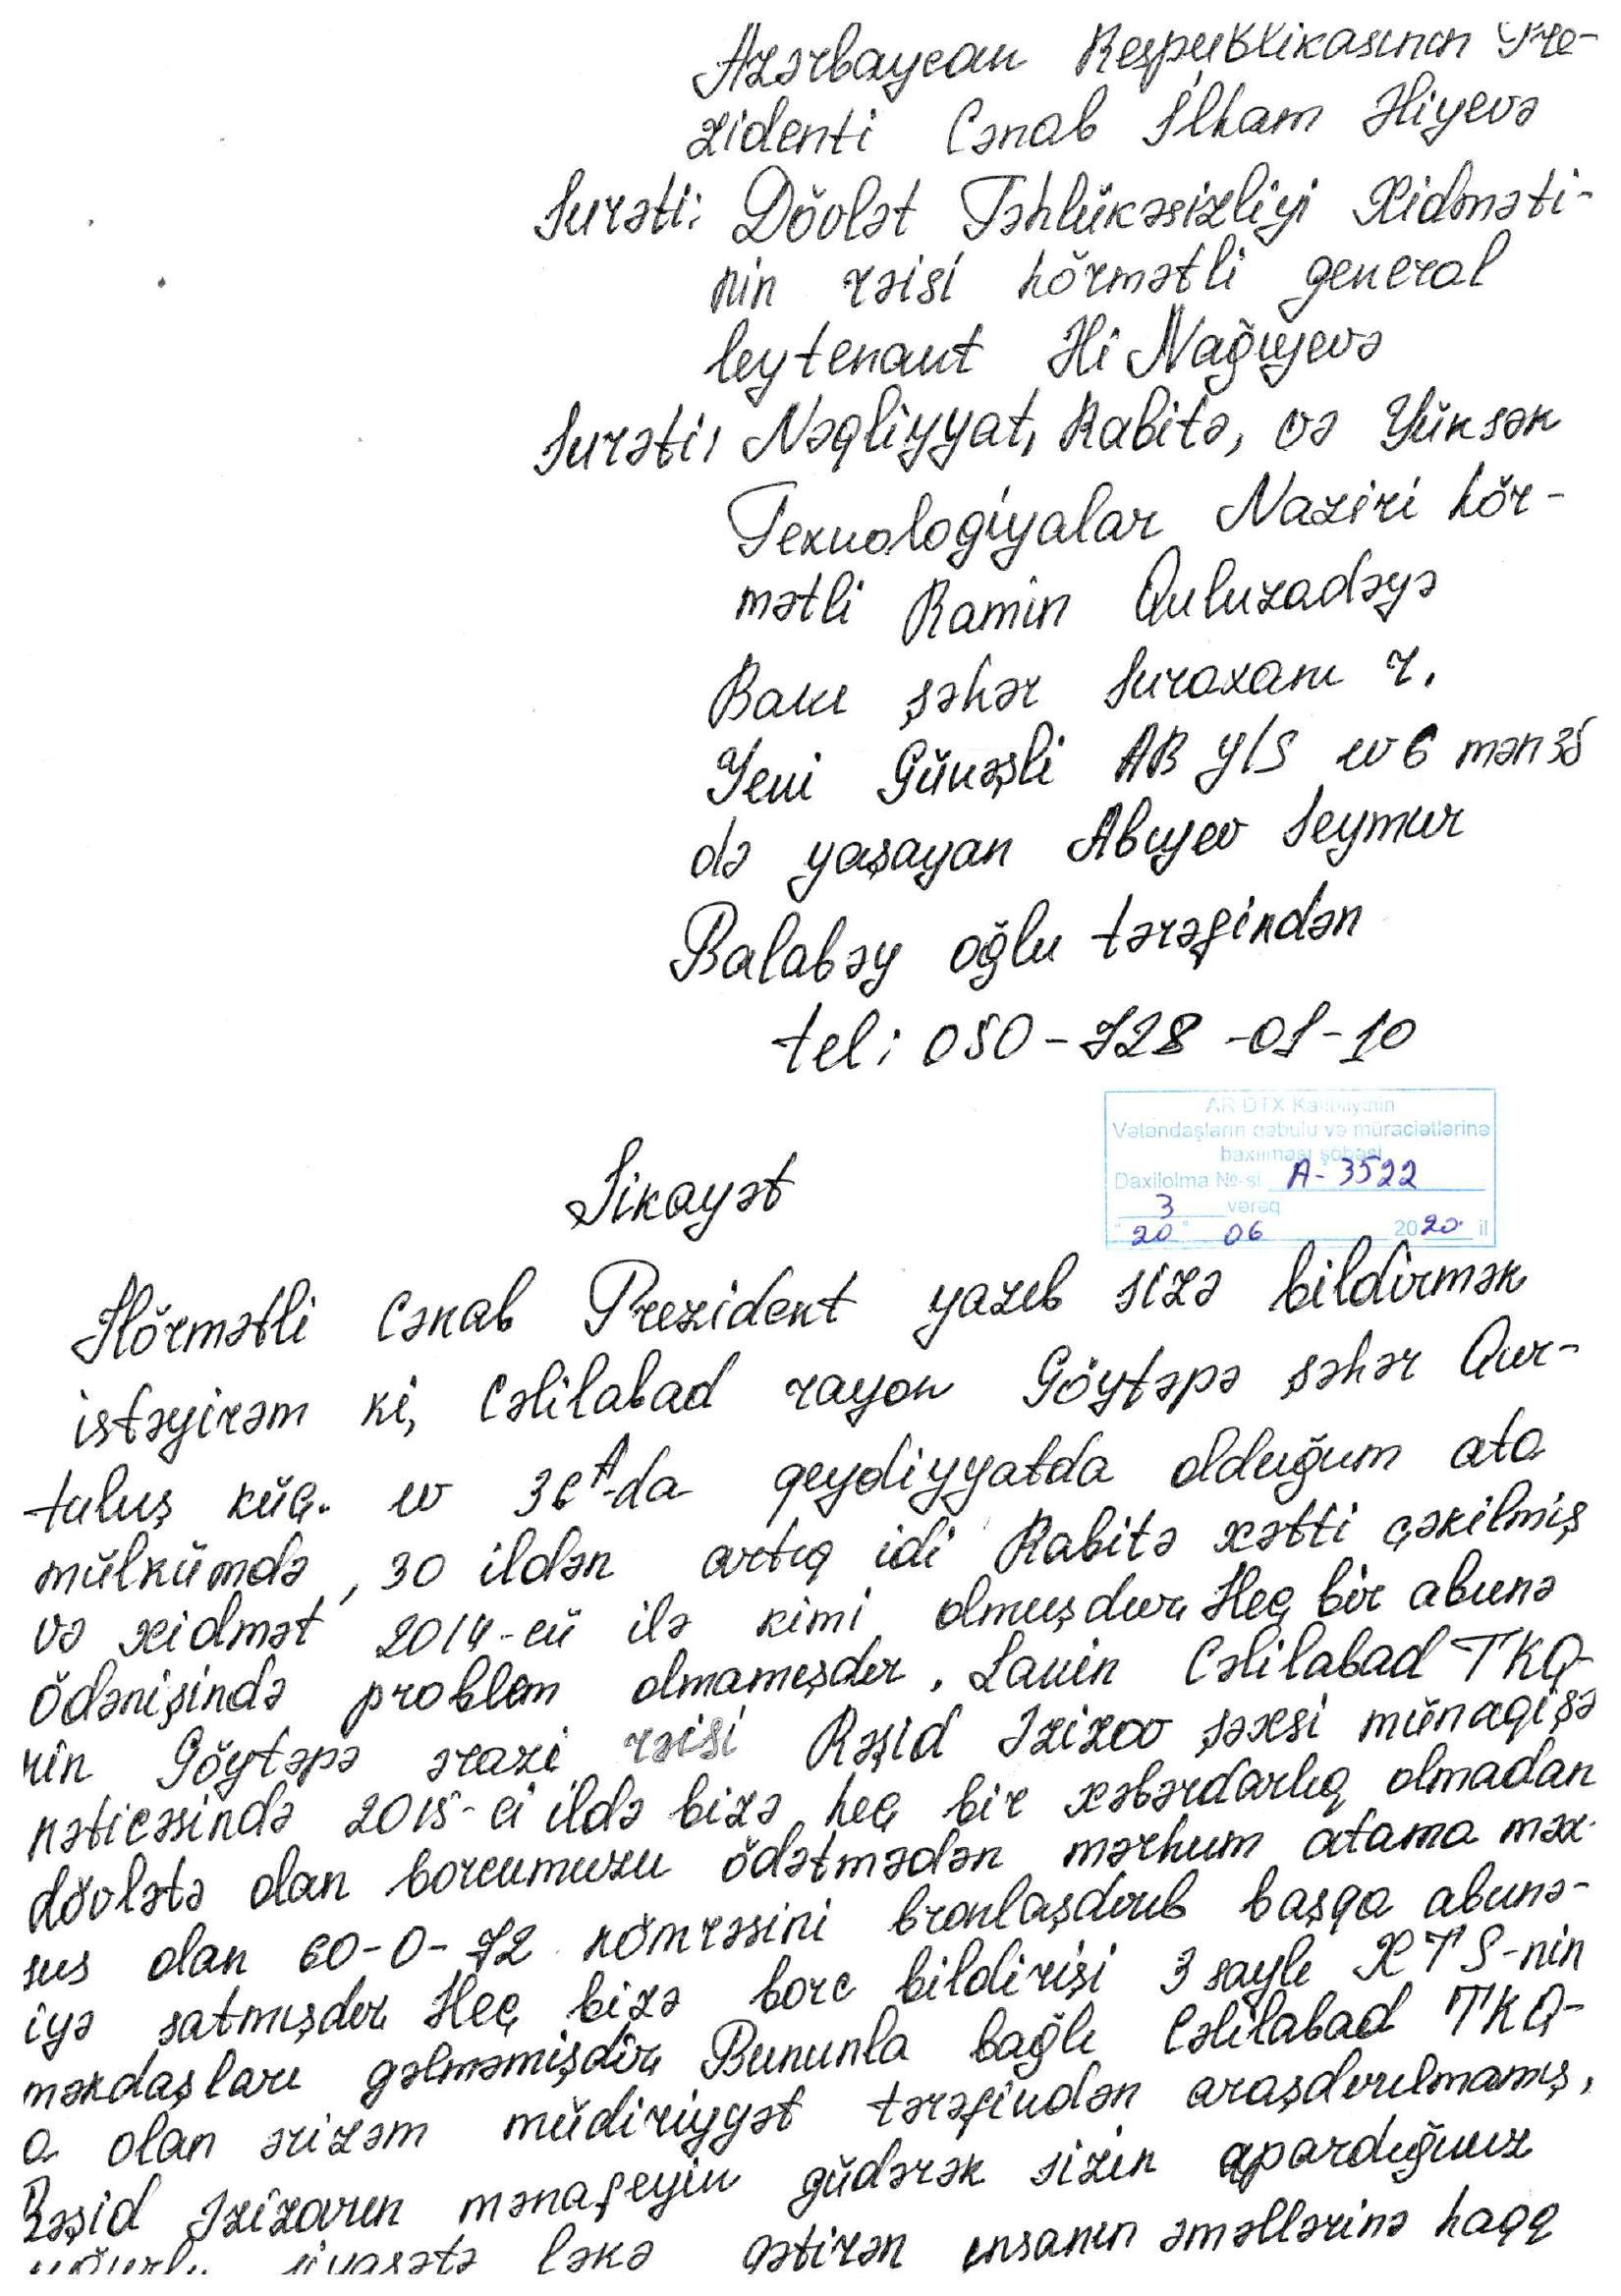 Azərbaycan Respublikasının Pre-
zidenti Cənab İlham Əliyevə
Surəti: Dövlət Təhlükəsizliyi Xidməti-
nin rəisi hörmətli general
leytenant Əli Nağıyevə
Surəti: Nəqliyyat, Rabitə, və Yüksək
Texnologiyalar Naziri hör-
mətli Ramin Quluzadəyə
Bakı şəhər Suraxanı r.
Yeni Günəşli AB Y/S ev 6 mən 35
də yaşayan Abıyev Seymur
Balabəy oğlu tərəfindən
tel: 050-728-01-10
AR DTX Katibliyinin
Vətəndaşların qəbulu və müraciətlərinə
baxılması şöbəsi
Daxilolma №-si A-3522
3 vərəq
"20" 06 2020 il
Şikayət
Hörmətli Cənab Prezident yazıb sizə bildirmək
istəyirəm ki, Cəlilabad rayon Göytəpə şəhər Qur-
tuluş küç. ev 36A-da qeydiyyatda olduğum ata
mülkümdə, 30 ildən artıq idi Rabitə xətti çəkilmiş
və xidmət 2014-cü ilə kimi olmuşdur. Heç bir abunə
ödənişində problem olmamışdır. Lakin Cəlilabad TKQ-
nin Göytəpə ərazi rəisi Rəşid Əzizov şəxsi münaqişə
nəticəsində 2015-ci ildə bizə heç bir xəbərdarlıq olmadan
dövlətə olan borcumuzu ödətmədən mərhum atama məx-
sus olan 60-0-72 nömrəsini bronlaşdırıb başqa abunə-
iyə satmışdır. Heç bizə borc bildirişi 3 saylı XTS-nin
məkdaşları gəlməmişdir. Bununla bağlı Cəlilabad TKQ-
a olan ərizəm müdiriyyət tərəfindən araşdırılmamış,
Rəşid Əzizovun mənafeyin güdərək sizin apardığınız
uğurlu siyasətə ləkə gətirən insanın əməllərinə haqq